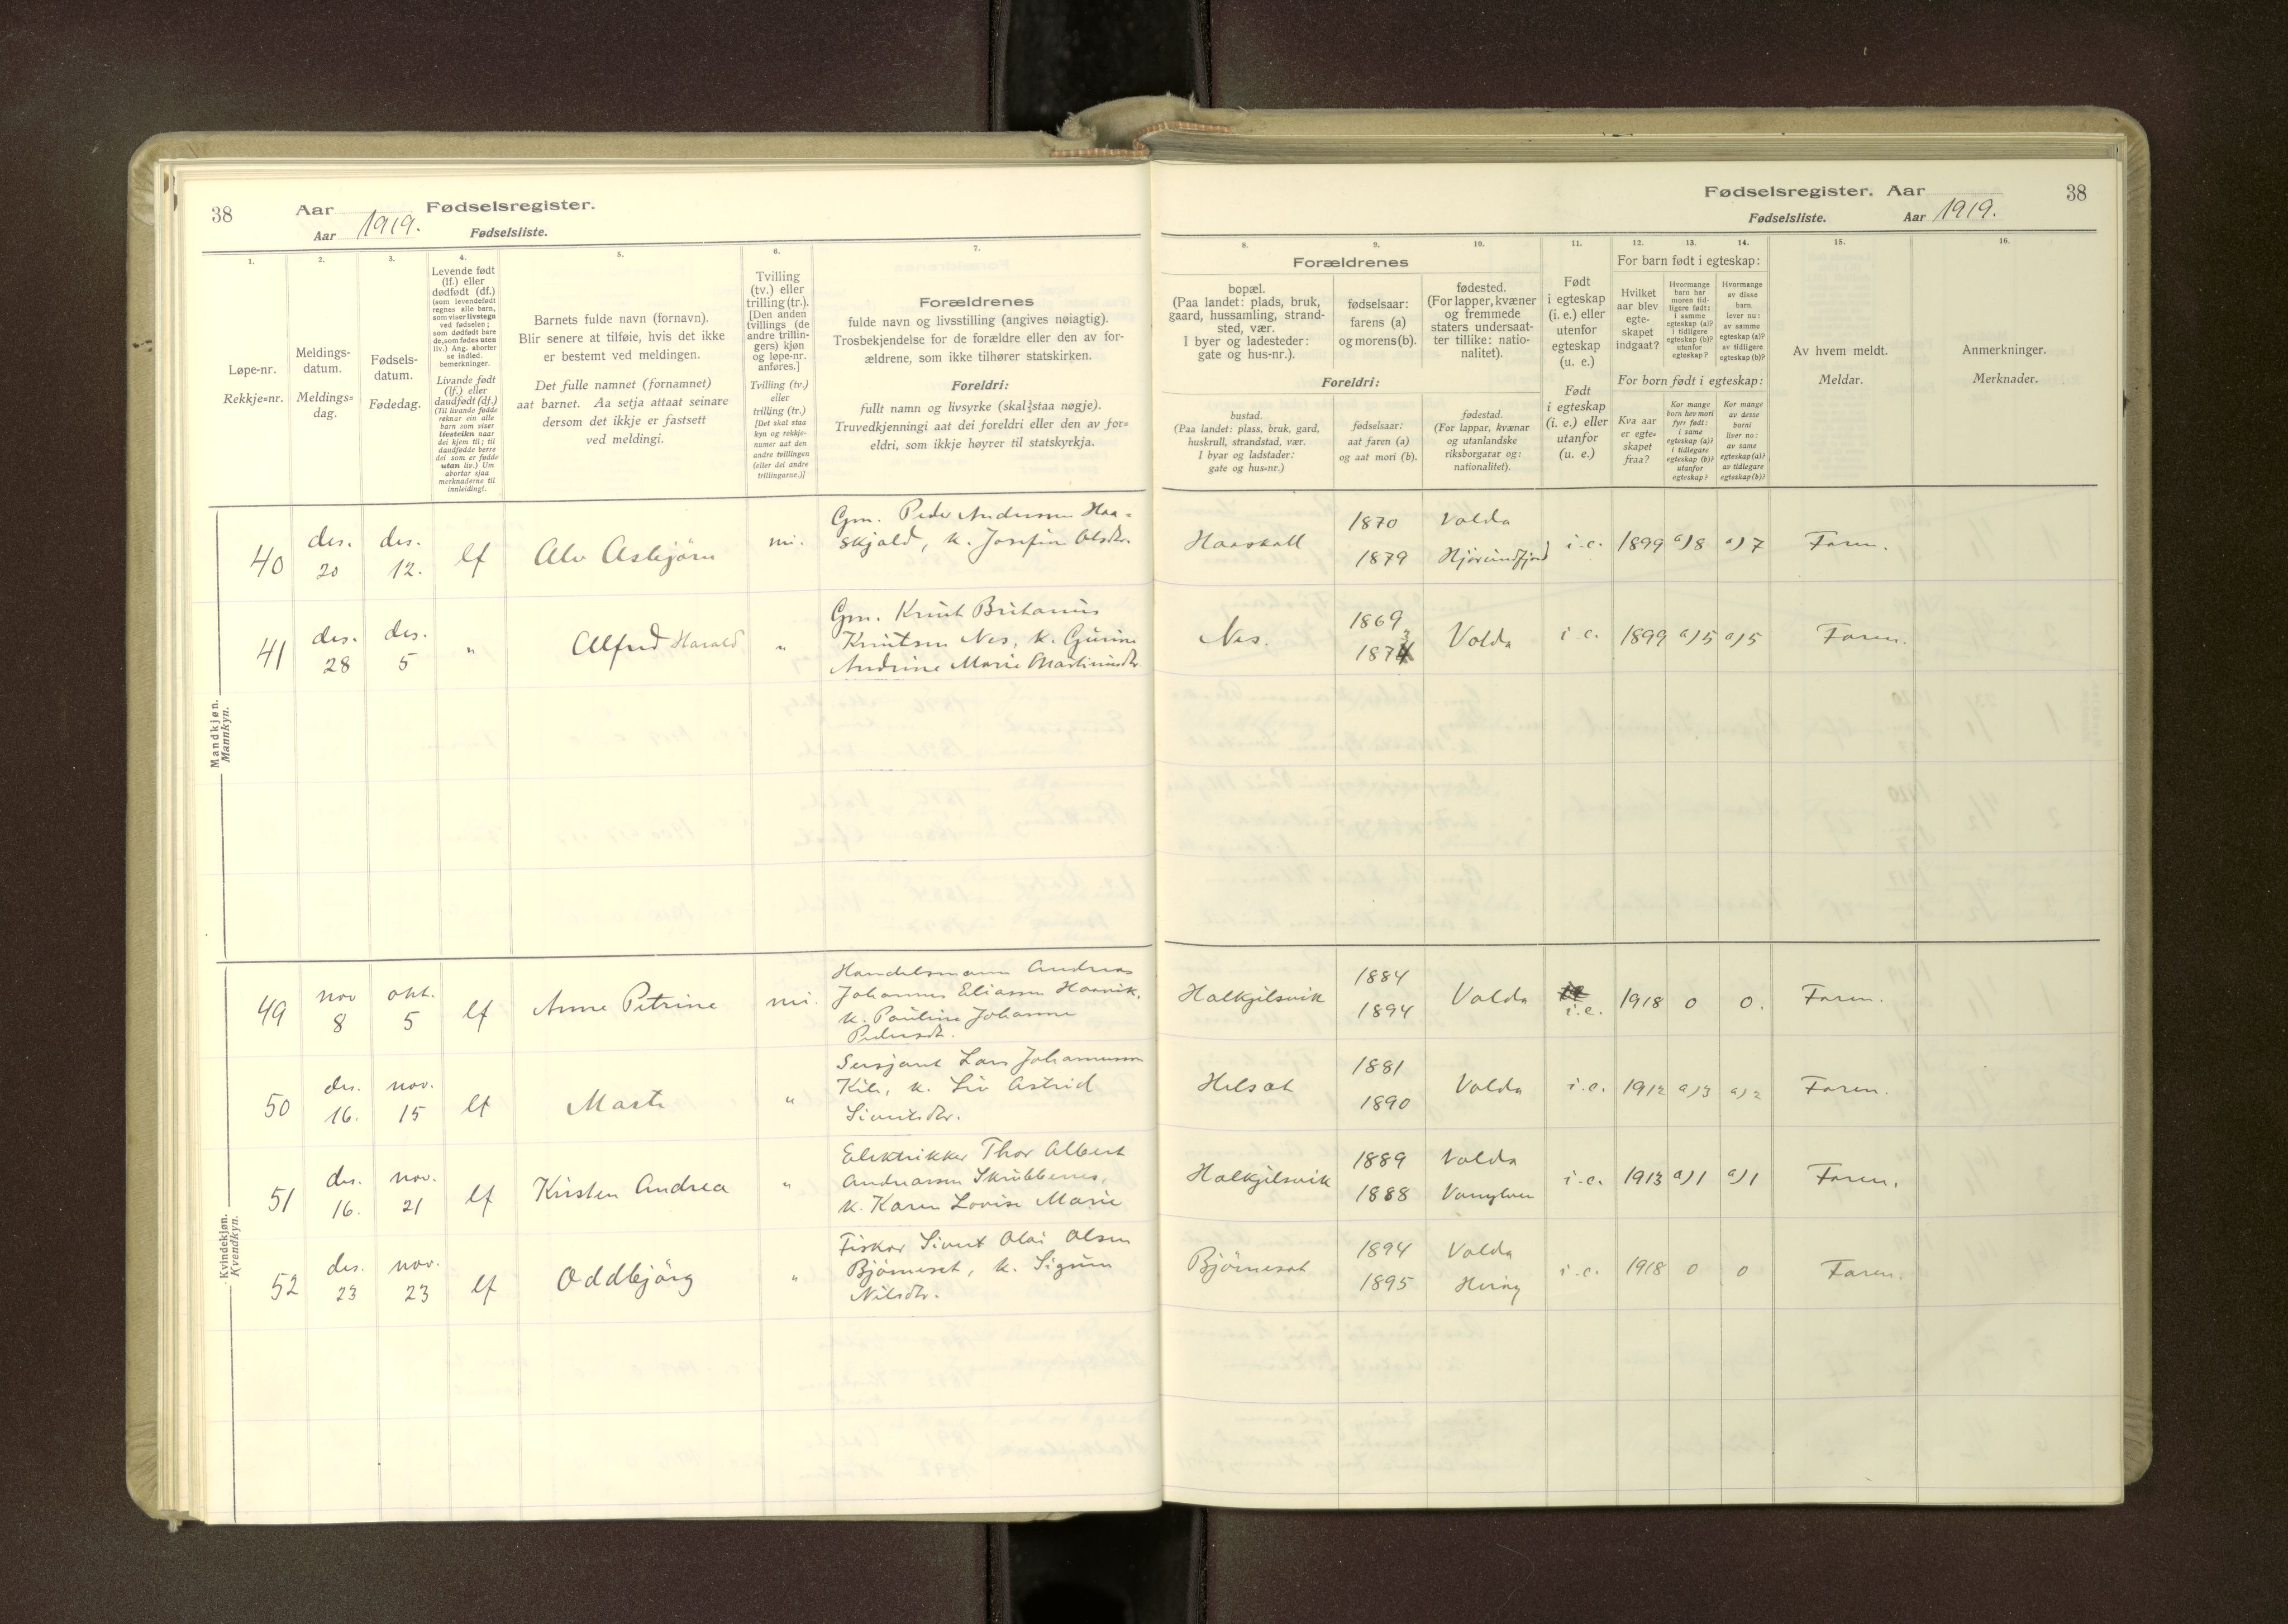 38
Aar
Fødselsregister.
Aar 1919.
Fødselsliste.
1.
2.
3.
4.
5.
6.
7.
Løpe-nr.
Rekkje=nr.
Meldings-
datum.
Meldings=
dag.
Fødsels-
datum.
Fødedag.
Levende født
(lf.) eller
dødfødt (df.)
(som levendefødt
regnes alle barn,
som viser livstegn
ved fødselen;
som dødfødt bare
de, som fødes uten
liv.) Ang. aborter
se indled.
bemerkninger.
Livande født
(lf.) eller
daudfødt (df.)
(Til livande fødde
reknar ein alle
barn som viser
livsteikn naar
dei kjem til; til
daudfødde berre
dei som er fødde
utan liv.) Um
abortar sjaa
merknaderne til
innleidingi.
Barnets fulde navn (fornavn).
Blir senere at tilføie, hvis det ikke
er bestemt ved meldingen.
Det fulle namnet (fornamnet)
aat barnet. Aa setja attaat seinare
dersom det ikkje er fastsett
ved meldingi.
Tvilling
(tv.) eller
trilling (tr.).
[Den anden
tvillings (de
andre trillin-
gers) kjøn
og løpe-nr.
anføres.]
Tvilling (tv.)
eller
trilling (tr.)
[Det skal staa
kyn og rekkje-
numer aat den
andre tvillingen
(eller dei andre
trillingarne.)]
Forældrenes
fulde navn og livsstilling (angives nøiagtig).
Trosbekjendelse for de forældre eller den av for-
ældrene, som ikke tilhører statskirken.
Foreldri:
fullt namn og livsyrke (skal staa nøgje).
Truvedkjenningi aat dei foreldri eller den av for=
eldri, som ikkje høyrer til statskyrkja.
Mandkjøn.
Mannkyn.
40
des.
20
des.
12.
lf
Alv Asbjörn
mi.
Gm. Peder Andersen Haa=
skjold, k. Josefin Olsdtr.
41
des.
28
des.
5
"
Alfred Harald
"
Gm. Knut Britanus
Knutsen Nes, k. Gurine
Andrine Marie Martinusdtr.
Kvindekjøn.
Kvendkyn.
49
nov
8
okt.
5
lf
Anne Petrine
mi.
Handelsmann Andreas
Johannes Eliassen Haavik,
k. Pauline Johanne
Pedersdt.
50
des.
16.
nov.
15
lf
Marta
"
Sersjant Lars Johannessen
Kile, k. Liv Astrid
Sivertsdtr.
51
des.
16.
nov.
21
lf
Kirsten Andrea
"
Elektrikker Thor Albert
Andreassen Skrubbenes,
k. Karen Lovise Marie
52
des.
23
nov.
23
lf
Oddbjörg
"
Fisker Sivert Olai Olsen
Björneset, k. Sigrun
Nilsdtr.
Fødselsregister. Aar
38
Fødselsliste.
Aar 1919.
8.
9.
10.
11.
12.
13.
14.
15.
16.
Forældrenes
bopæl.
(Paa landet: plads, bruk,
gaard, hussamling, strand-
sted, vær.
I byer og ladesteder:
gate og hus-nr.).
fødselsaar:
farens (a)
og morens (b).
fødested.
(For lapper, kvæner
og fremmede
staters undersaat-
ter tillike: natio-
nalitet).
Foreldri:
bustad.
(Paa landet: plass, bruk, gard,
huskrull, strandstad, vær.
I byar og ladstader:
gate og hus=nr.)
fødselsaar:
aat faren (a)
og aat mori (b).
fødestad.
(For lappar, kvænar
og utanlandske
riksborgarar og:
nationalitet).
Født
i egteskap
(i. e.) eller
utenfor
egteskap
(u. e.)
Født
i egteskap
(i. e.) eller
utanfor
(u. e.)
For barn født i egteskap:
Hvilket
aar blev
egte-
skapet
indgaat?
Hvormange
barn har
moren tid-
ligere født:
i samme
egteskap (a)?
i tidligere
egteskap (b)?
utenfor
egteskap?
Hvormange
av disse
barn
lever nu:
av samme
egteskap (a)?
av tidligere
egteskap (b)?
For born født i egteskap:
Kva aar
er egte=
skapet
fraa?
Kor mange
born hev mori
fyrr født:
i same
egteskap (a)?
i tidlegare
egteskap (b)?
utanfor
egteskap?
Kor mange
av desse
borni
liver no:
av same
egteskap (a)?
av tidlegare
egteskap (b)?
Av hvem meldt.
Meldar.
Anmerkninger.
Merknader.
Haaskall
1870
1879
Volda
Hjörundfjord
i.e.
1899
a)8
a)7
Faren.
Nes.
1869
1873
Volda
i e.
1899
a)5
a)5
Faren.
Halkjelsvik
1884
1894
Volda
i.e.
1918
0
0.
Faren.
Helset
1881
1890
Volda
i.e.
1912
a)3
a)2
Faren.
Halkjelsvik
1889
1888
Volda
Vanylven
i.e.
1913
a)1
a)1
Faren.
Björneset
1894
1895
Volda
i.e.
1918
0
0
Faren.